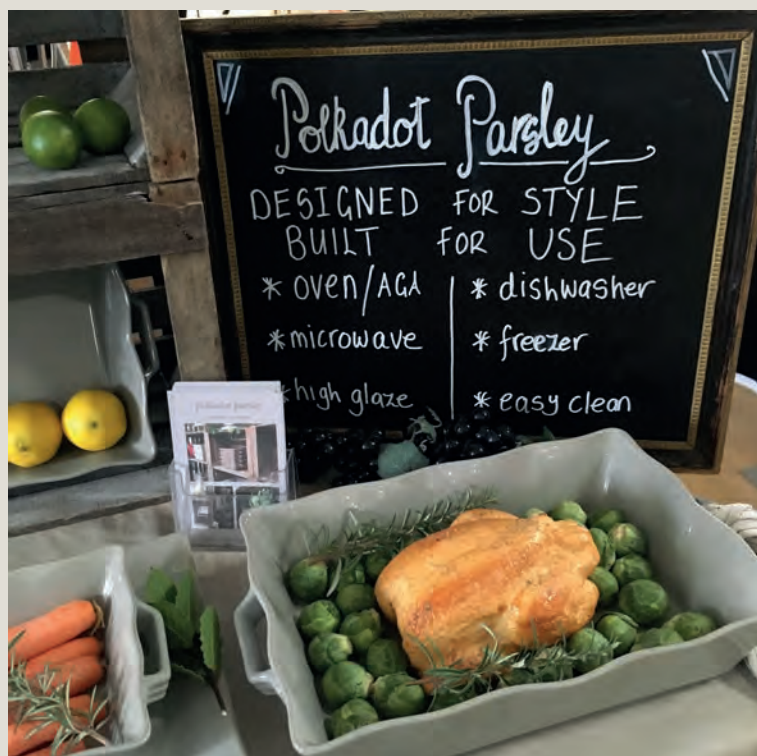 Polkadot Parsley
DESIGNED FOR STYLE
BUILT FOR USE
* oven/AGA
* microwave
* high glaze
* dishwasher
* freezer
* easy clean
polkadot parsley